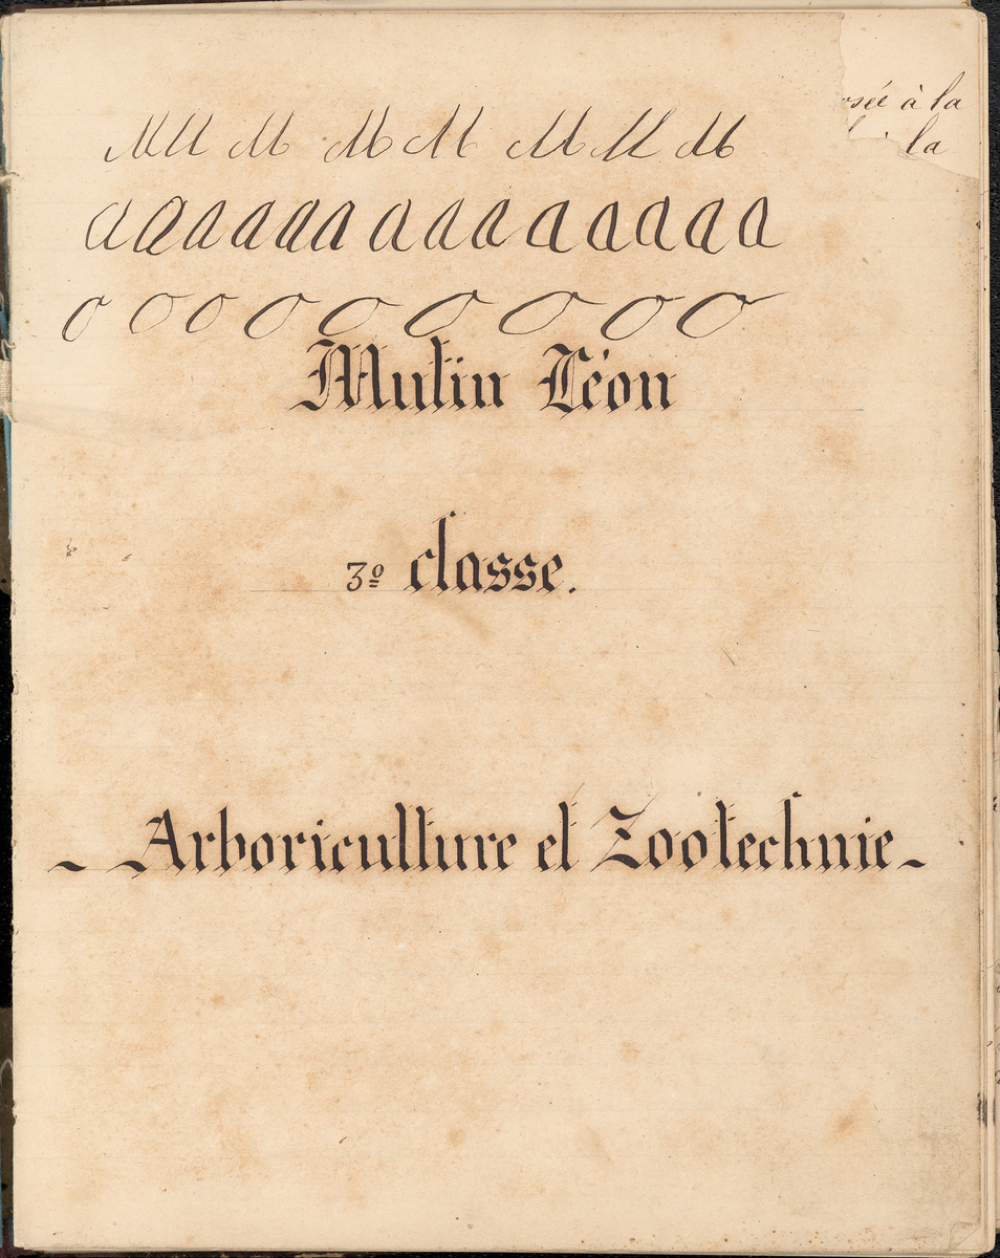 osée à la
la
M M M M M M M M
a a a a a a a a a a a a a a a
o o o o o o o o o
Mutin Léon
3º classe.
- Arboriculture et Zootechnie -